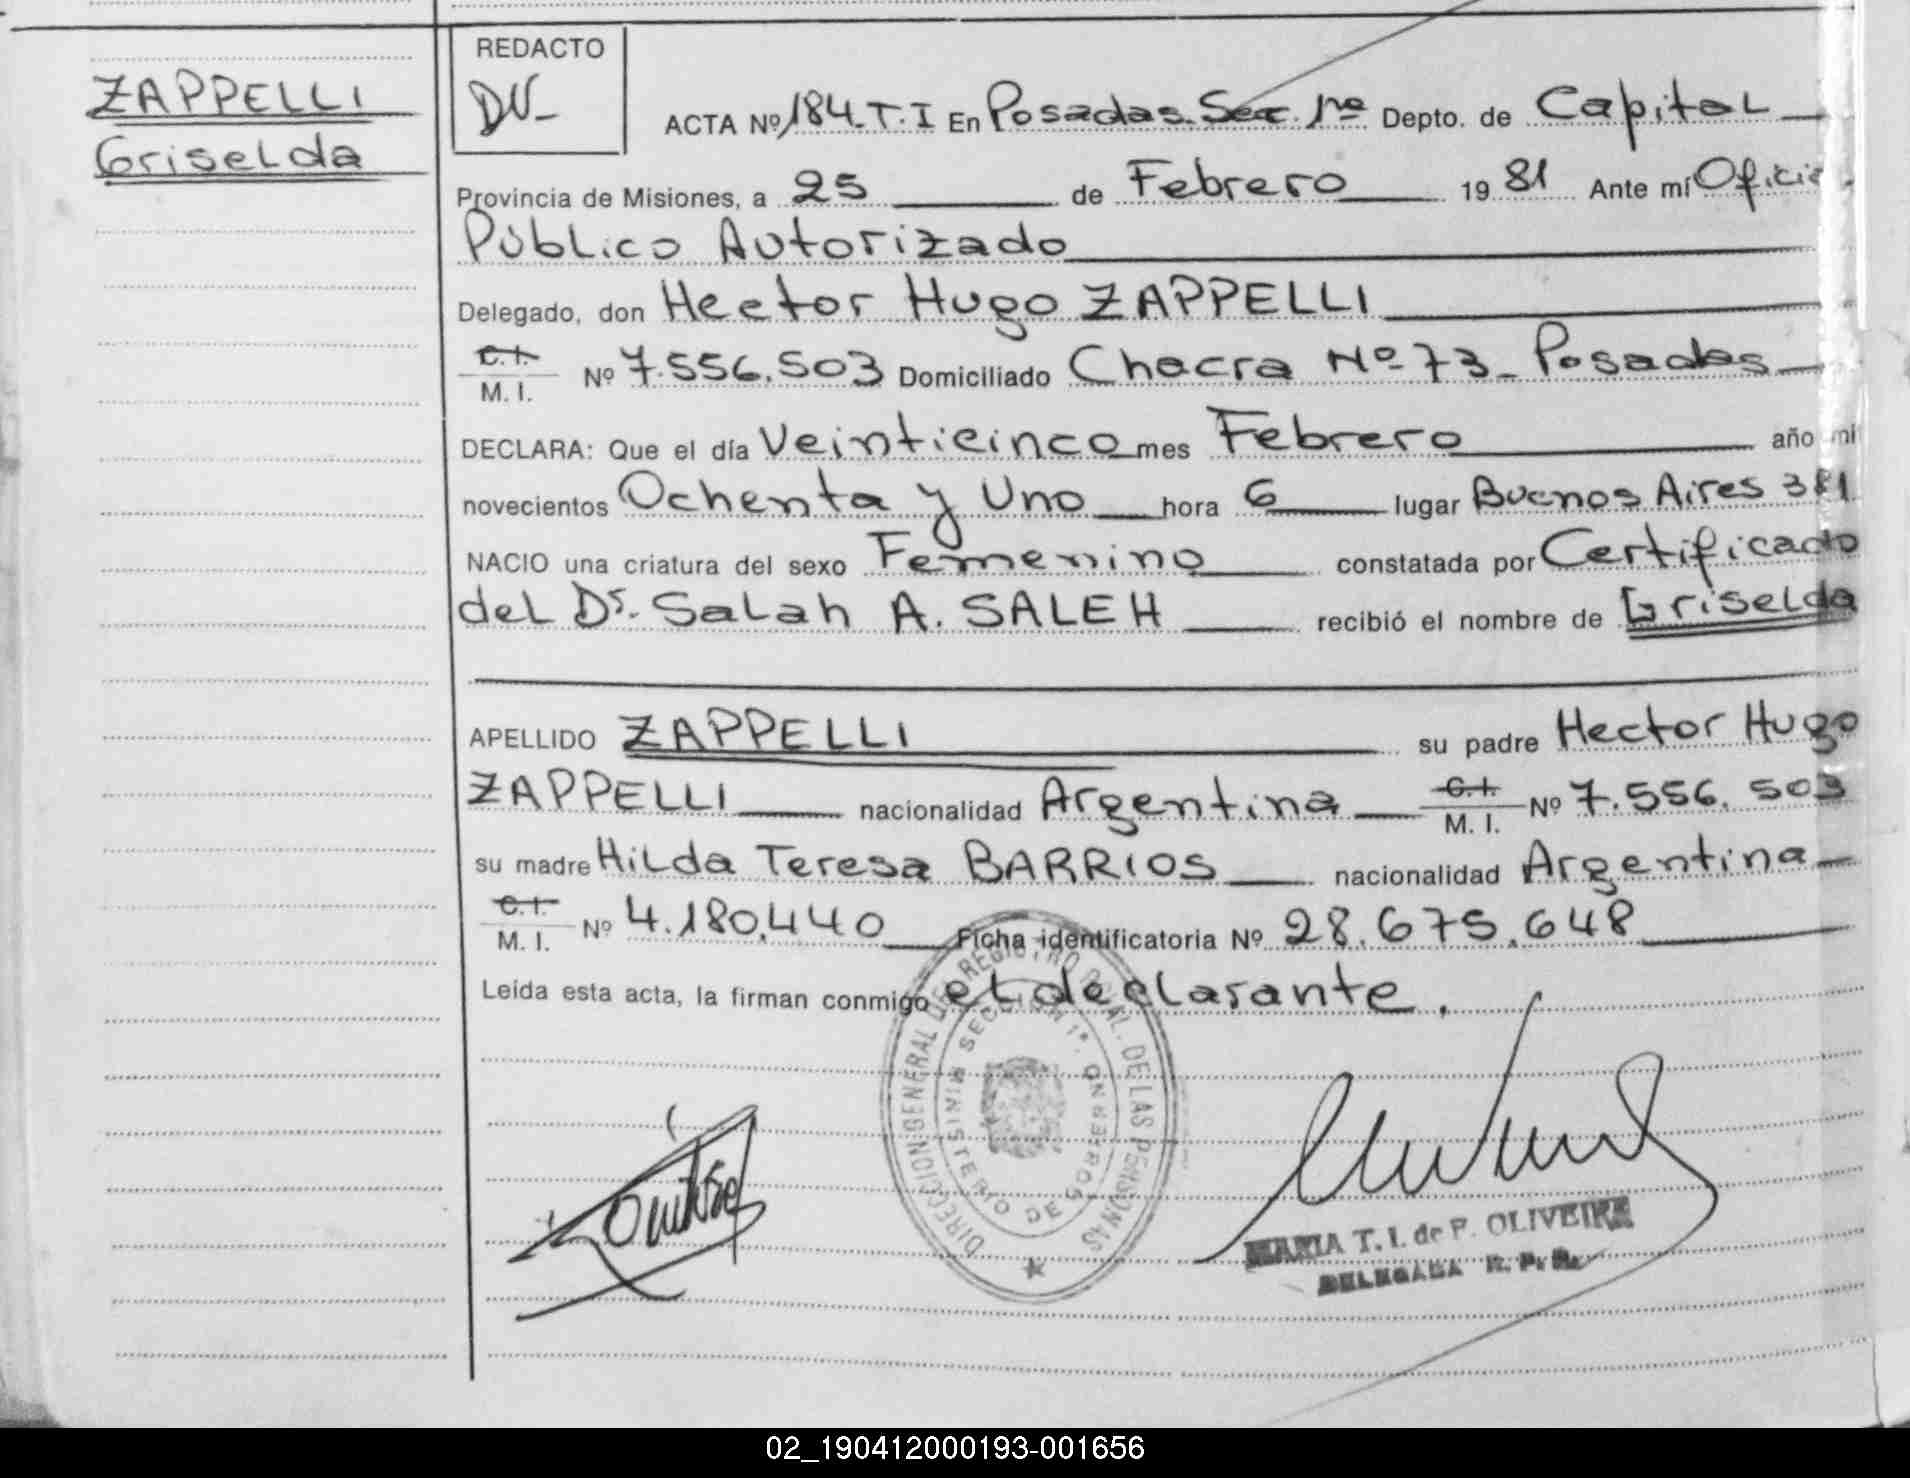 ZAPPELLI
Griselda
REDACTO
DV-
ACTA Nº 184.T.I En Posadas.Sec.1ra Depto. de Capital
Provincia de Misiones, a 25 de Febrero 1981 Ante mí Oficial
Público Autorizado
Delegado, don Hector Hugo ZAPPELLI
C.I.
M. I. Nº 7.556.503 Domiciliado Chacra Nº 73_ Posadas
DECLARA: Que el día Veinticinco mes Febrero año mil
novecientos Ochenta y Uno hora 6 lugar Buenos Aires 381
NACIO una criatura del sexo Femenino constatada por Certificado
del Dr. Salah A. SALEH recibió el nombre de Griselda
APELLIDO ZAPPELLI su padre Hector Hugo
ZAPPELLI nacionalidad Argentina C.I. M. I. Nº 7.556.503
su madre Hilda Teresa BARRIOS nacionalidad Argentina
C.I.
M. I. Nº 4.180.440 Ficha identificatoria Nº 28.675.648
Leída esta acta, la firman conmigo el declarante.
DIRECCION GENERAL DEL REGISTRO PCIAL. DE LAS PERSONAS
SECCION 1ª.
MINISTERIO DE GOBIERNO
MARIA T. I. de P. OLIVEIRA
DELEGADA R. P. P.
02_190412000193-001656